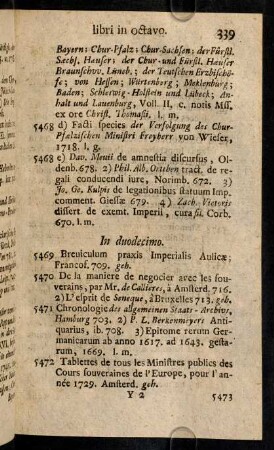 libri in octavo. 339
Bayern; Chur-Pfaltz; Chur-Sachsen; der Fürstl.
Sachs. Hauser; der Chur-und Fürstl. Hauser
Braunschvv. Lüneb.; der Teutschen Erzbischö-
fe; von Hessen; Würtenberg; Meklenburg;
Baden; Schlesvvig-Holstein und Lübeck; An-
halt und Lauenburg, Voll. II, c. notis Mss.
ex ore Christ. Thomasii, l. m.
5468 d) Facti species der Verfolgung des Chur-
Pfaltzischen Ministri Freyherr von Wieser,
1718. l. g.
5468 e) Dav. Mevii de amnestia discursus, Ol-
denb. 678. 2) Phil. Alb. Ortehen tract. de re-
gali conducendi jure, Norimb. 672. 3)
Jo. Ge. Kulpis de legationibus statuum Imp.
comment. Giessæ 679. 4) Zach. Vietoris
dissert de exemt. Imperii, cura sii. Corb.
670. l. m.
In duodecimo.
5469 Breviculum praxis Imperialis Aulicæ,
Francof. 709. geb.
5470 De la maniere de negocier avec les sou-
verains, par Mr. de Callieres, à Amsterd. 716.
2) L'esprit de Seneque, à Bruxelles 713. geb.
5471 Chronologie des allgemeinen Staats-Archivs,
Hamburg 703. 2) P. L. Berkenmeyers Anti-
quarius, ib. 708. 3) Epitome rerum Ger-
manicarum ab anno 1617. ad 1643. gesta-
rum, 1669. l. m.
5472 Tablettes de tous les Ministres publics des
Cours souveraines de l'Europe, pour l'an-
née 1729. Amsterd. geb.
Y 2 5473